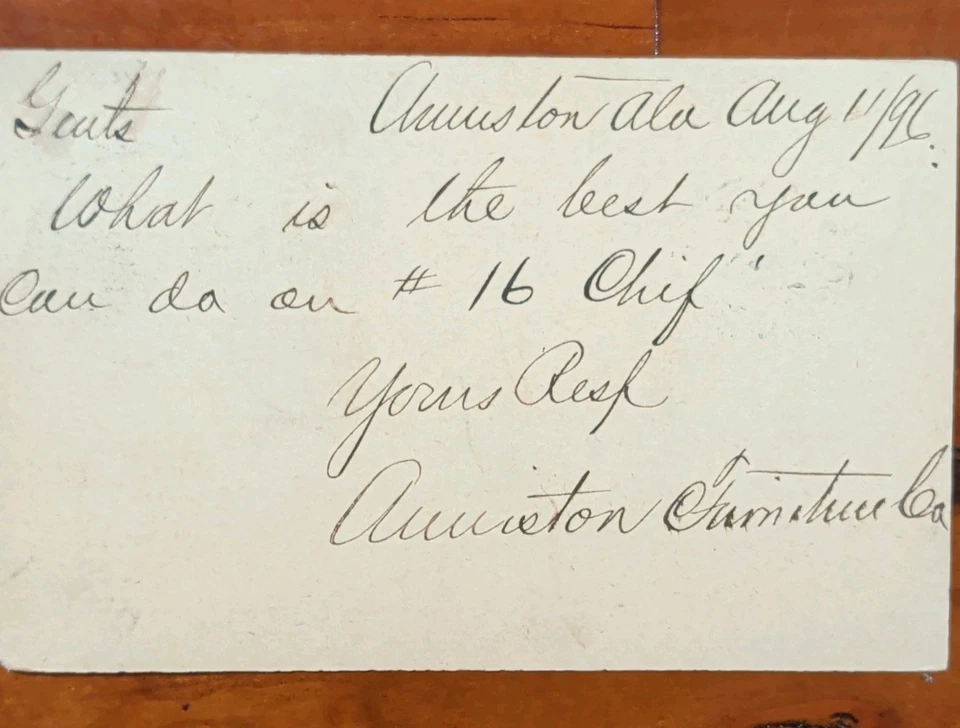 Gents Anniston Ala Aug 11/96.
What is the best you
Can do on # 16 Chif"
Yours Resp
Anniston Furniture Co